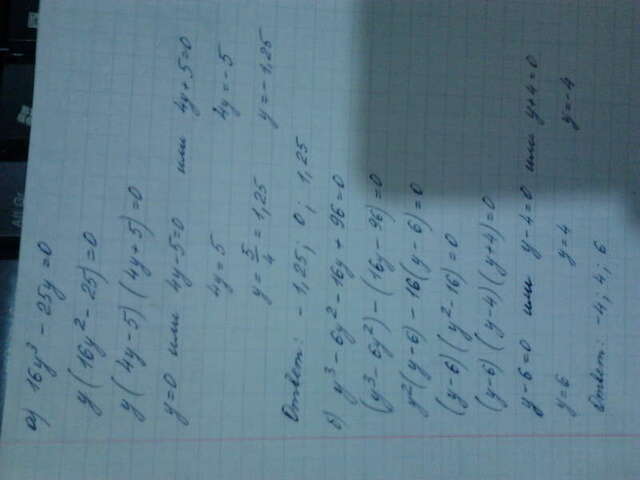 а) 16y³ - 25y = 0
y(16y² - 25) = 0
y(4y - 5)(4y + 5) = 0
y = 0 или 4y - 5 = 0 или 4y + 5 = 0
4y = 5 4y = -5
y = 5/4 = 1,25 y = -1,25
Ответ: -1,25; 0; 1,25
б) y³ - 6y² - 16y + 96 = 0
(y³ - 6y²) - (16y - 96) = 0
y²(y - 6) - 16(y - 6) = 0
(y - 6)(y² - 16) = 0
(y - 6)(y - 4)(y + 4) = 0
y - 6 = 0 или y - 4 = 0 или y + 4 = 0
y = 6 y = 4 y = -4
Ответ: -4; 4; 6